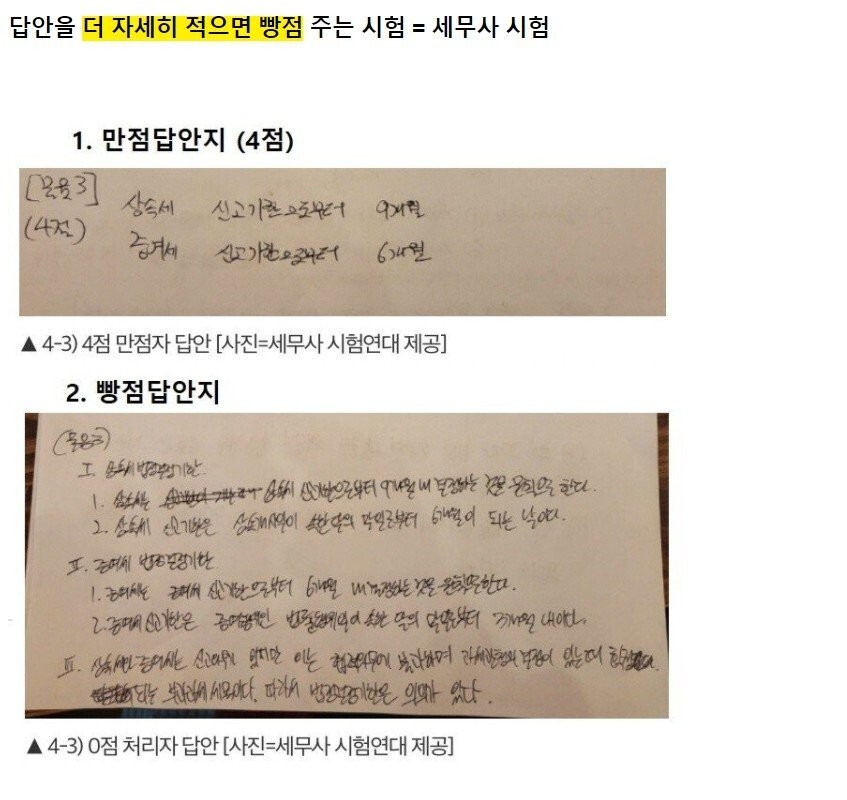 답안을 더 자세히 적으면 빵점 주는 시험 = 세무사 시험
1. 만점답안지 (4점)
[물음3] 상속세 신고기한으로부터 9개월
(4점) 증여세 신고기한으로부터 6개월
▲ 4-3) 4점 만점자 답안 [사진=세무사 시험연대 제공]
2. 빵점답안지
(물음3)
I. 상속세 법정결정기한
1. 상속세는 상속세 신고기한으로부터 9개월 내 결정하는 것을 원칙으로 한다.
2. 상속세 신고기한은 상속개시일이 속한 달의 말일로부터 6개월이 되는 날이다.
II. 증여세 법정결정기한
1. 증여세는 증여세 신고기한으로부터 6개월 내 결정하는 것을 원칙으로한다.
2. 증여세 신고기한은 속한 달의 말일로부터 3개월 내이다.
상속세와 증여세는 신고의무 있지만 이는 협력의무에 불과하며 과세관청의 결정이 있는때
되는 부과과세 세목이다. 따라서 법정결정기한은 의의가 있다.
▲ 4-3) 0점 처리자 답안 [사진=세무사 시험연대 제공]